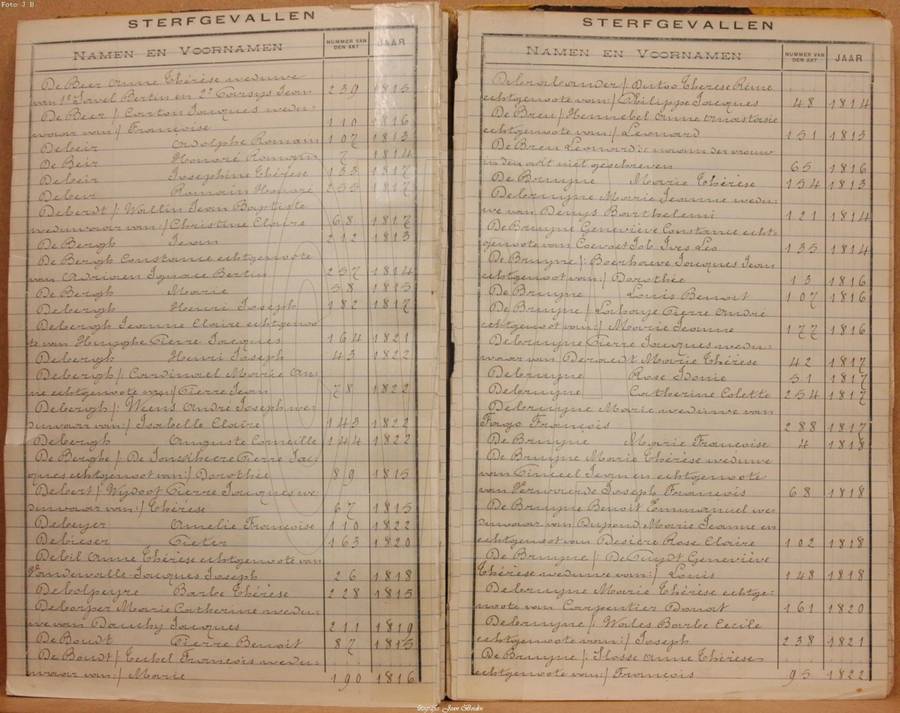 Foto: J B
STERFGEVALLEN
NAMEN EN VOORNAMEN NUMMER VAN DEN AKT JAAR
De Beer Anne Thérèse weduwe
van 1e Javel Bertin en 2e Jean 239 1815
De Beer / Carton Jacques wedu-
waar van:/ Françoise 110 1816
Debeir Adolphe Romain 107 1813
De Beir Honoré Romain 7 1814
Debeir Josephine Thérèse 133 1817
Debeir Romain Honoré 255 1817
Deberdt / Wallin Jean Baptiste
weduwaar van:/ Christine Claire 68 1817
De Bergh Jean 212 1813
De Bergh Constance echtgenoote
van Adriaen Ignace Bertin 257 1814
De Bergh Marie 58 1815
Debergh Henri Joseph 182 1817
Debergh Jeanne Claire echtgenoo-
te van Hunghe Pierre Jacques 164 1821
Debergh Henri Joseph 43 1822
Debergh / Cardinael Marie An-
ne echtgenoote van:/ Pierre Jean 78 1822
Debergh /: Weens Andre Joseph we-
duwaar van:/ Isabelle Claire 143 1822
Debergh Auguste Corneille 144 1822
De Berghe / De Jonckheere Pierre Jac-
ques echtgenoot van:/ Dorothée 89 1815
Debert / Wydoot Pierre Jacques we-
duwaar van:/ Thérèse 67 1815
Debeyer Amelie Françoise 110 1822
Debieser Pieter 163 1820
Debil Anne Thérèse echtgenoote van
Vandewalle Jacques Joseph 26 1818
Debolpeyre Barbe Thérèse 228 1815
Deborper Marie Catherine wedu-
we van Dauchy Jacques 211 1819
De Boudt Pierre Benoit 87 1815
De Boudt / François wedu-
waar van:/ Marie 190 1816
STERFGEVALLEN
NAMEN EN VOORNAMEN NUMMER VAN DEN AKT JAAR
Debrabander / Dutoo Thérèse Reine
echtgenoote van:/ Philippe Jacques 48 1814
De Breu / Hennebel Anne Anastasie
echtgenoote van:/ Leonard 151 1815
De Breu Leonard: naam der vrouw
in den akt niet geschreven 65 1816
De Bruyne Marie Thérèse 154 1813
Debruyne Marie Jeanne wedu-
we van Denys Barthelemi 121 1814
De Bruyne Geneviève Constance echt-
genoote van Coevoet Job Ives Leo 135 1814
De Bruyne /: Beerhouve Jacques Jean
echtgenoot van:/ Dorothée 13 1816
De Bruyne Louis Benoit 107 1816
De Bruyne / Labaye Pierre André
echtgenoot van:/ Marie Jeanne 177 1816
Debruyne Pierre Jacques wedu-
waar van Deraedt Marie Thérèse 42 1817
Debruyne Rose Idonie 51 1817
Debruyne Catherine Colette 254 1817
Debruyne Marie weduwe van
Fago François 288 1817
De Bruyne Marie Françoise 4 1818
De Bruyne Marie Thérèse weduwe
van Pinceel Jean en echtgenoote
van Vervoorde Joseph François 68 1818
De Bruyne Benoit Emmanuel we-
duwaar van Dupond Marie Jeanne en
echtgenoot van Desiere Rose Claire 102 1818
De Bruyne /: De Puydt Geneviève
Thérèse weduwe van:/ Louis 148 1818
Debruyne Marie Thérèse echtge-
noote van Carpentier Donat 161 1820
Debruyne /: Wales Barbe Cecile
echtgenoote van:/ Joseph 238 1821
De Bruyne /: Slosse Anne Thérèse
echtgenoote van:/ François 95 1822